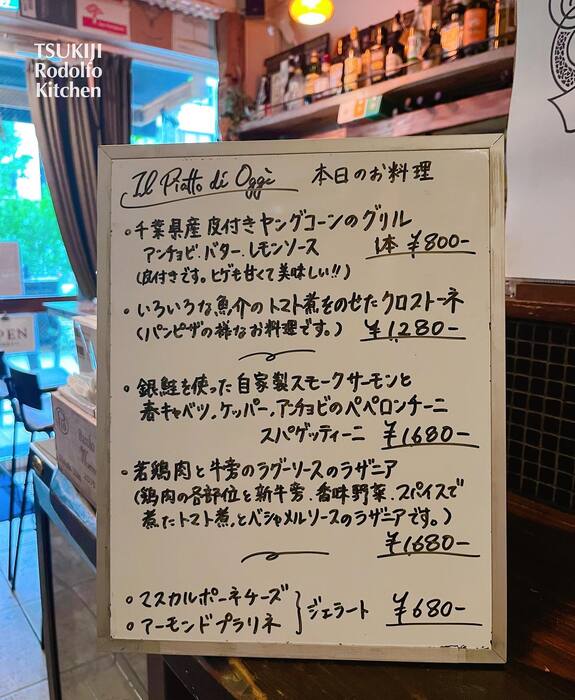 TSUKIJI
Rodolfo
Kitchen
Il Piatto di Oggi 本日のお料理
。千葉県産 皮付きヤングコーンのグリル
アンチョビ、バター、レモンソース 1本 ¥800-
(皮付きです。ヒゲも甘くて美味しい!!)
。いろいろな魚介のトマト煮をのせたクロストーネ
(パンピザの様なお料理です。) ¥1280-
。銀鮭を使った自家製スモークサーモンと
春キャベツ、ケッパー、アンチョビのペペロンチーニ
スパゲッティーニ ¥1680-
。若鶏肉と牛旁のラグーソースのラザニア
(鶏肉の各部位と新牛旁、香味野菜、スパイスで
煮たトマト煮、とベシャメルソースのラザニアです。)
¥1680-
。マスカルポーネチーズ
。アーモンドプラリネ
}ジェラート ¥680-
PEN